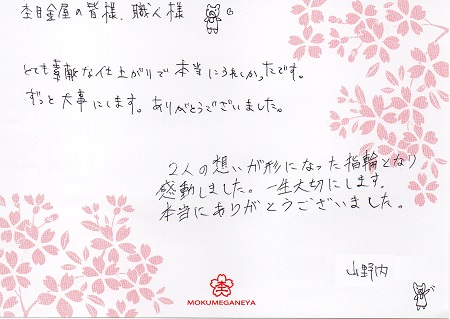 杢目金屋の皆様、職人様
とても素敵な仕上がりで本当にうれしかったです。
ずっと大事にします。ありがとうございました。
2人の想いが形になった指輪となり
感動しました。一生大切にします。
本当にありがとうございました。
山野内
杢
MOKUMEGANEYA